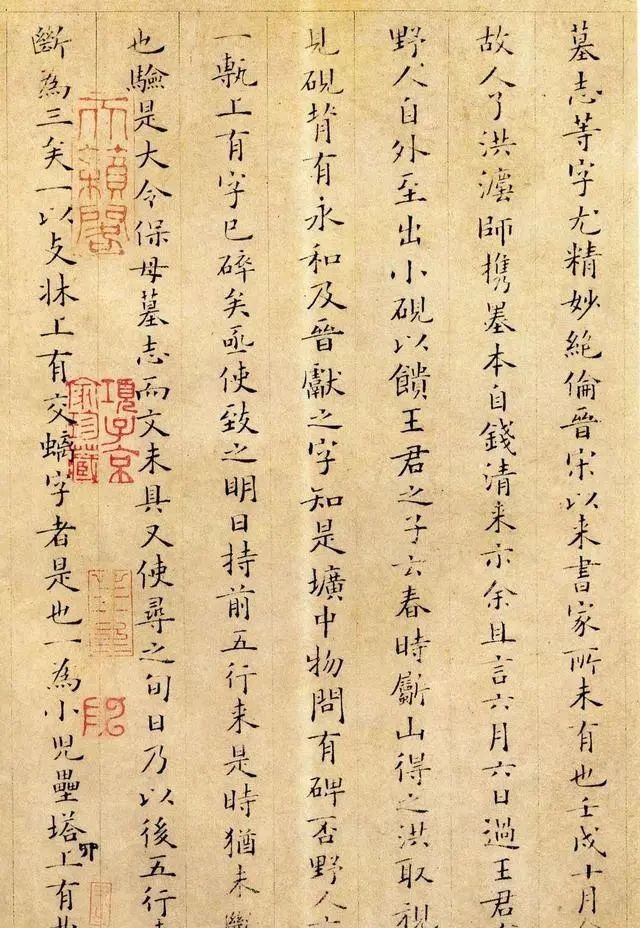 墓志等字尤精妙絶倫晉宋以来書家所未有也壬戌十月
故人了洪澐師携墨本自錢清来示余且言六月六日過王君
野人自外至出小硯以饋王君之子云春時斸山得之洪取視
見硯背有永和及晉獻之字知是壙中物問有碑否野人
一甎上有字已碎矣亟使致之明日持前五行来是時猶未
也驗是大令保母墓志而文未具又使尋之旬日乃以後五行
斷為三矣一以支牀上有交螭字者是也一為小兒壘塔上有
卯
天籟閣
項子京
家珍藏